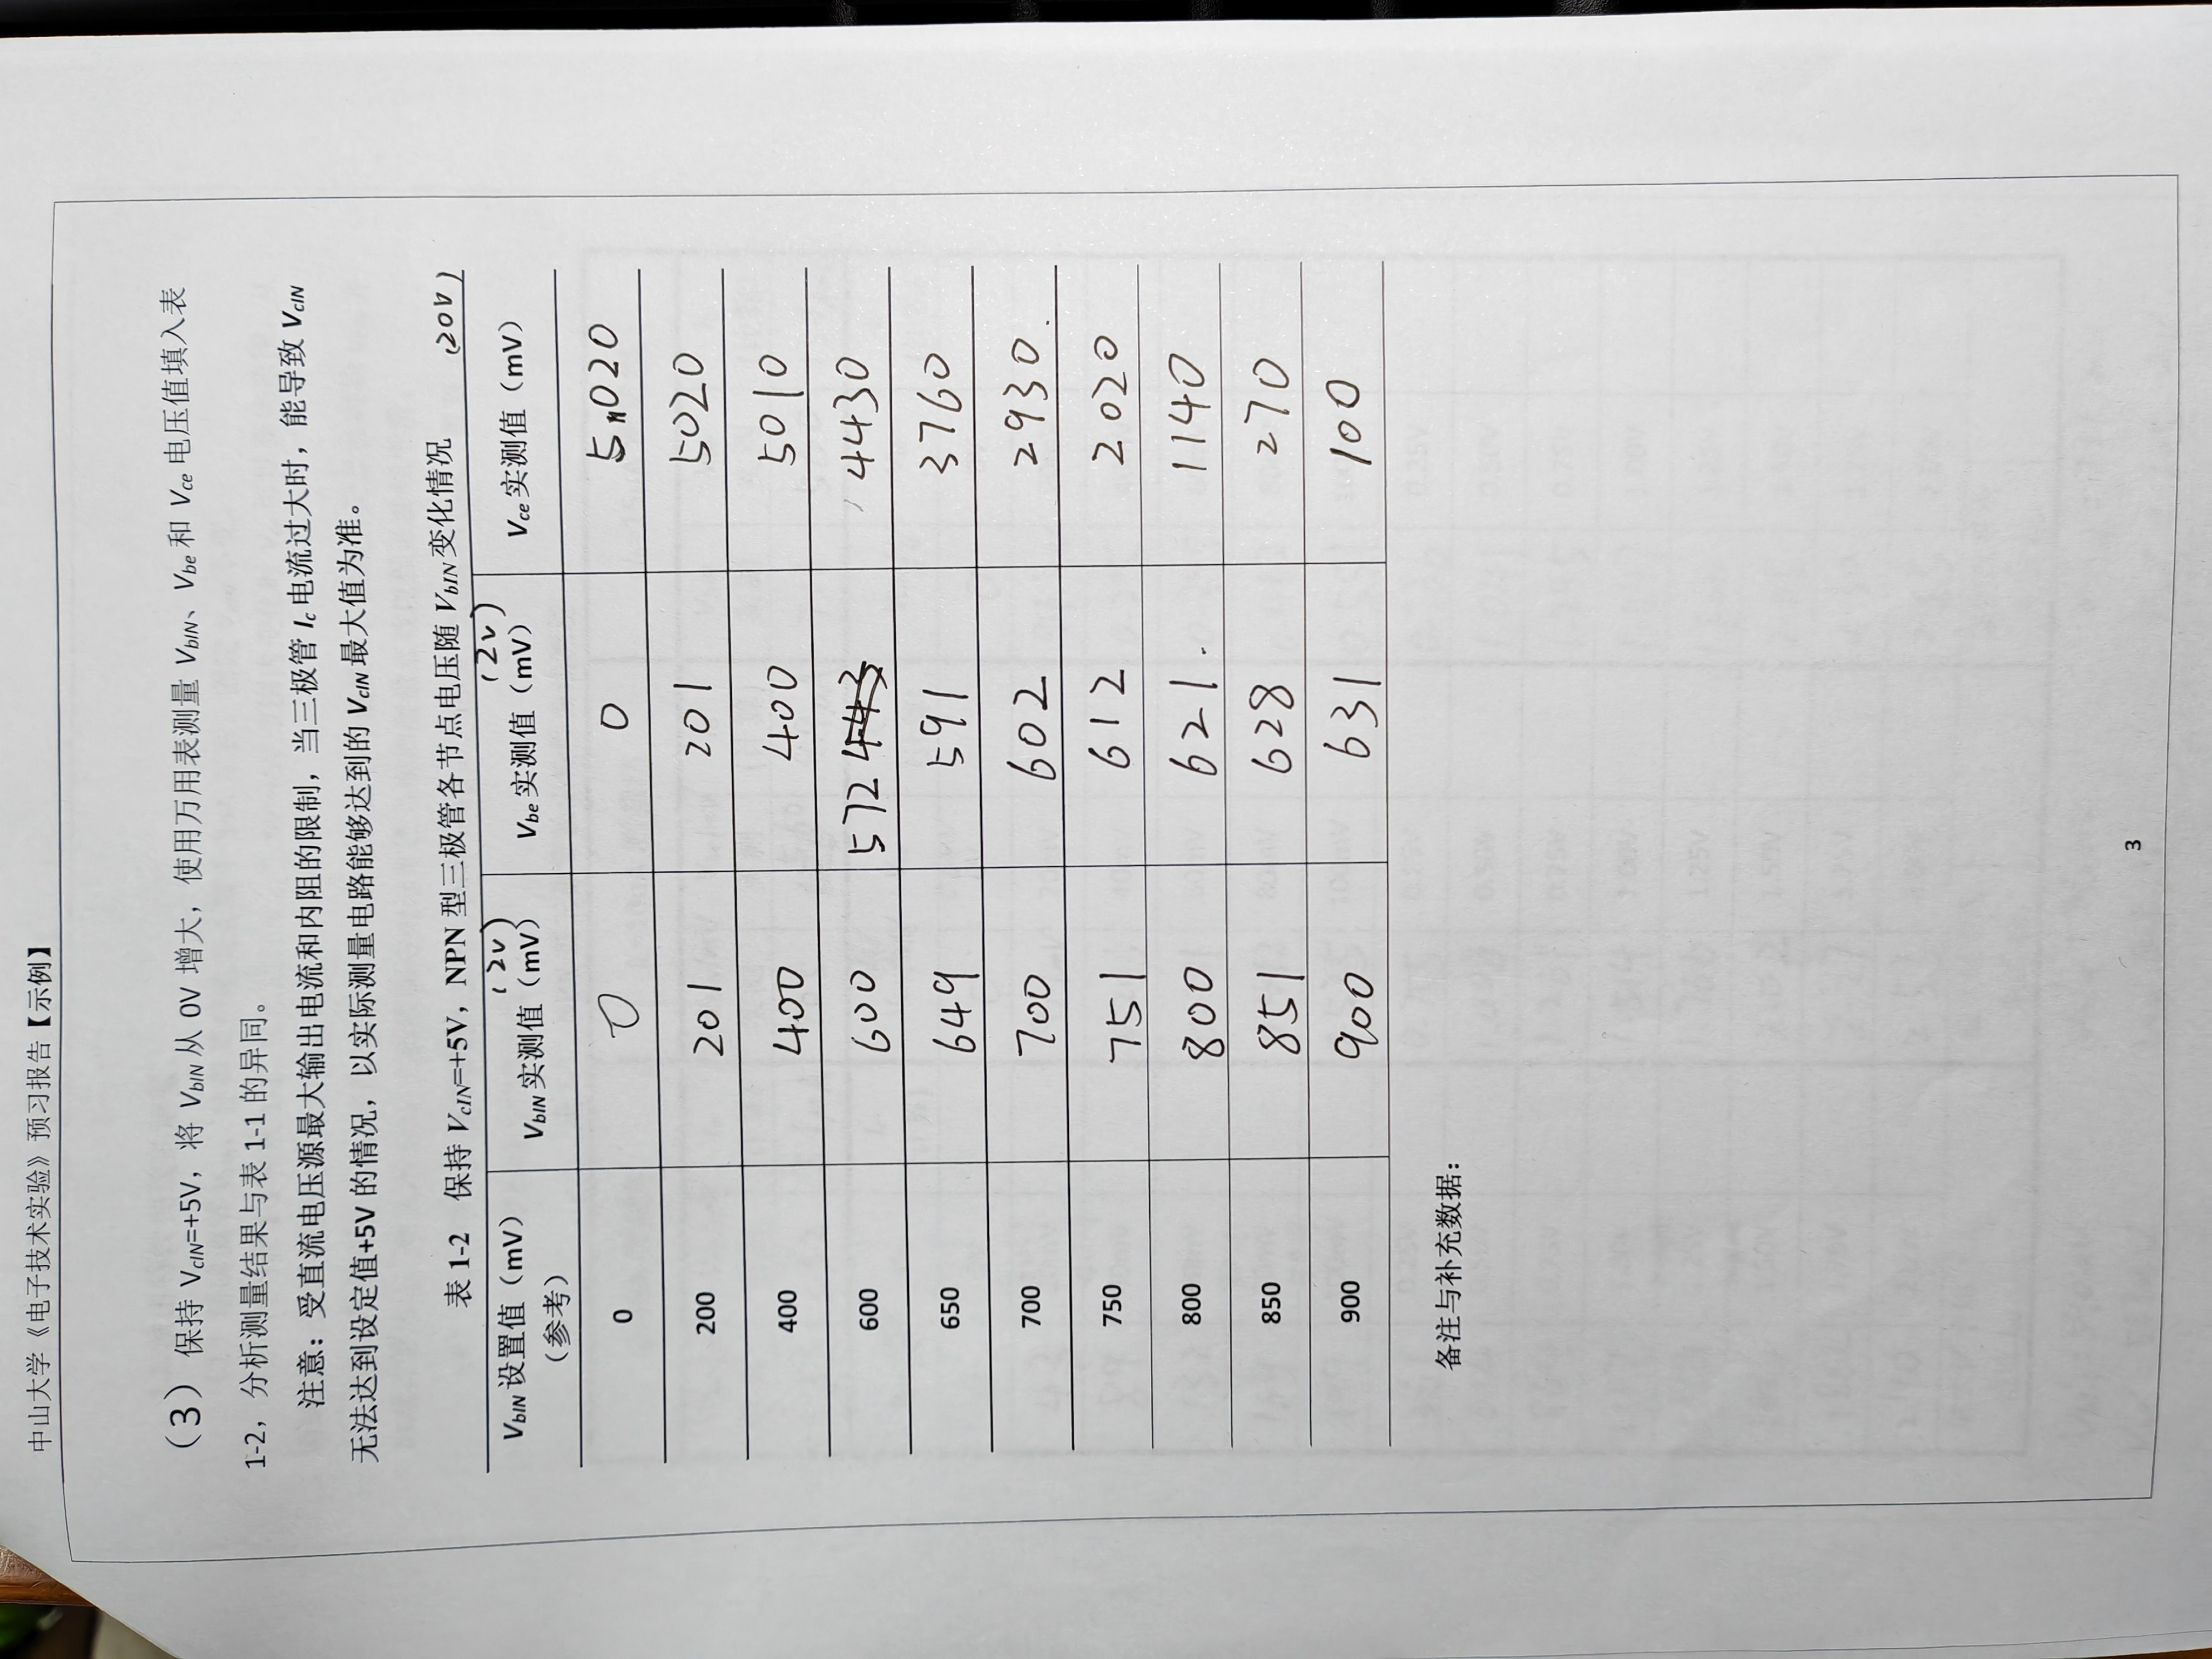 中山大学《电子技术实验》预习报告【示例】
（3）保持 VcIN=+5V，将 VbIN 从 0V 增大，使用万用表测量 VbIN、Vbe 和 Vce 电压值填入表
1-2，分析测量结果与表 1-1 的异同。
注意：受直流电压源最大输出电流和内阻的限制，当三极管 Ic 电流过大时，能导致 VcIN
无法达到设定值+5V 的情况，以实际测量电路能够达到的 VcIN 最大值为准。
表 1-2 保持 VcIN=+5V，NPN 型三极管各节点电压随 VbIN 变化情况 (20V)
VbIN 设置值（mV）（参考） VbIN 实测值（mV） (2V) Vbe 实测值（mV） (2V) Vce 实测值（mV）
0 0 0 5020
200 201 201 5020
400 400 400 5010
600 600 572 4430
650 649 591 3760
700 700 602 2930.
750 751 612 2020
800 800 621. 1140
850 851 628 270
900 900 631 100
备注与补充数据：
3